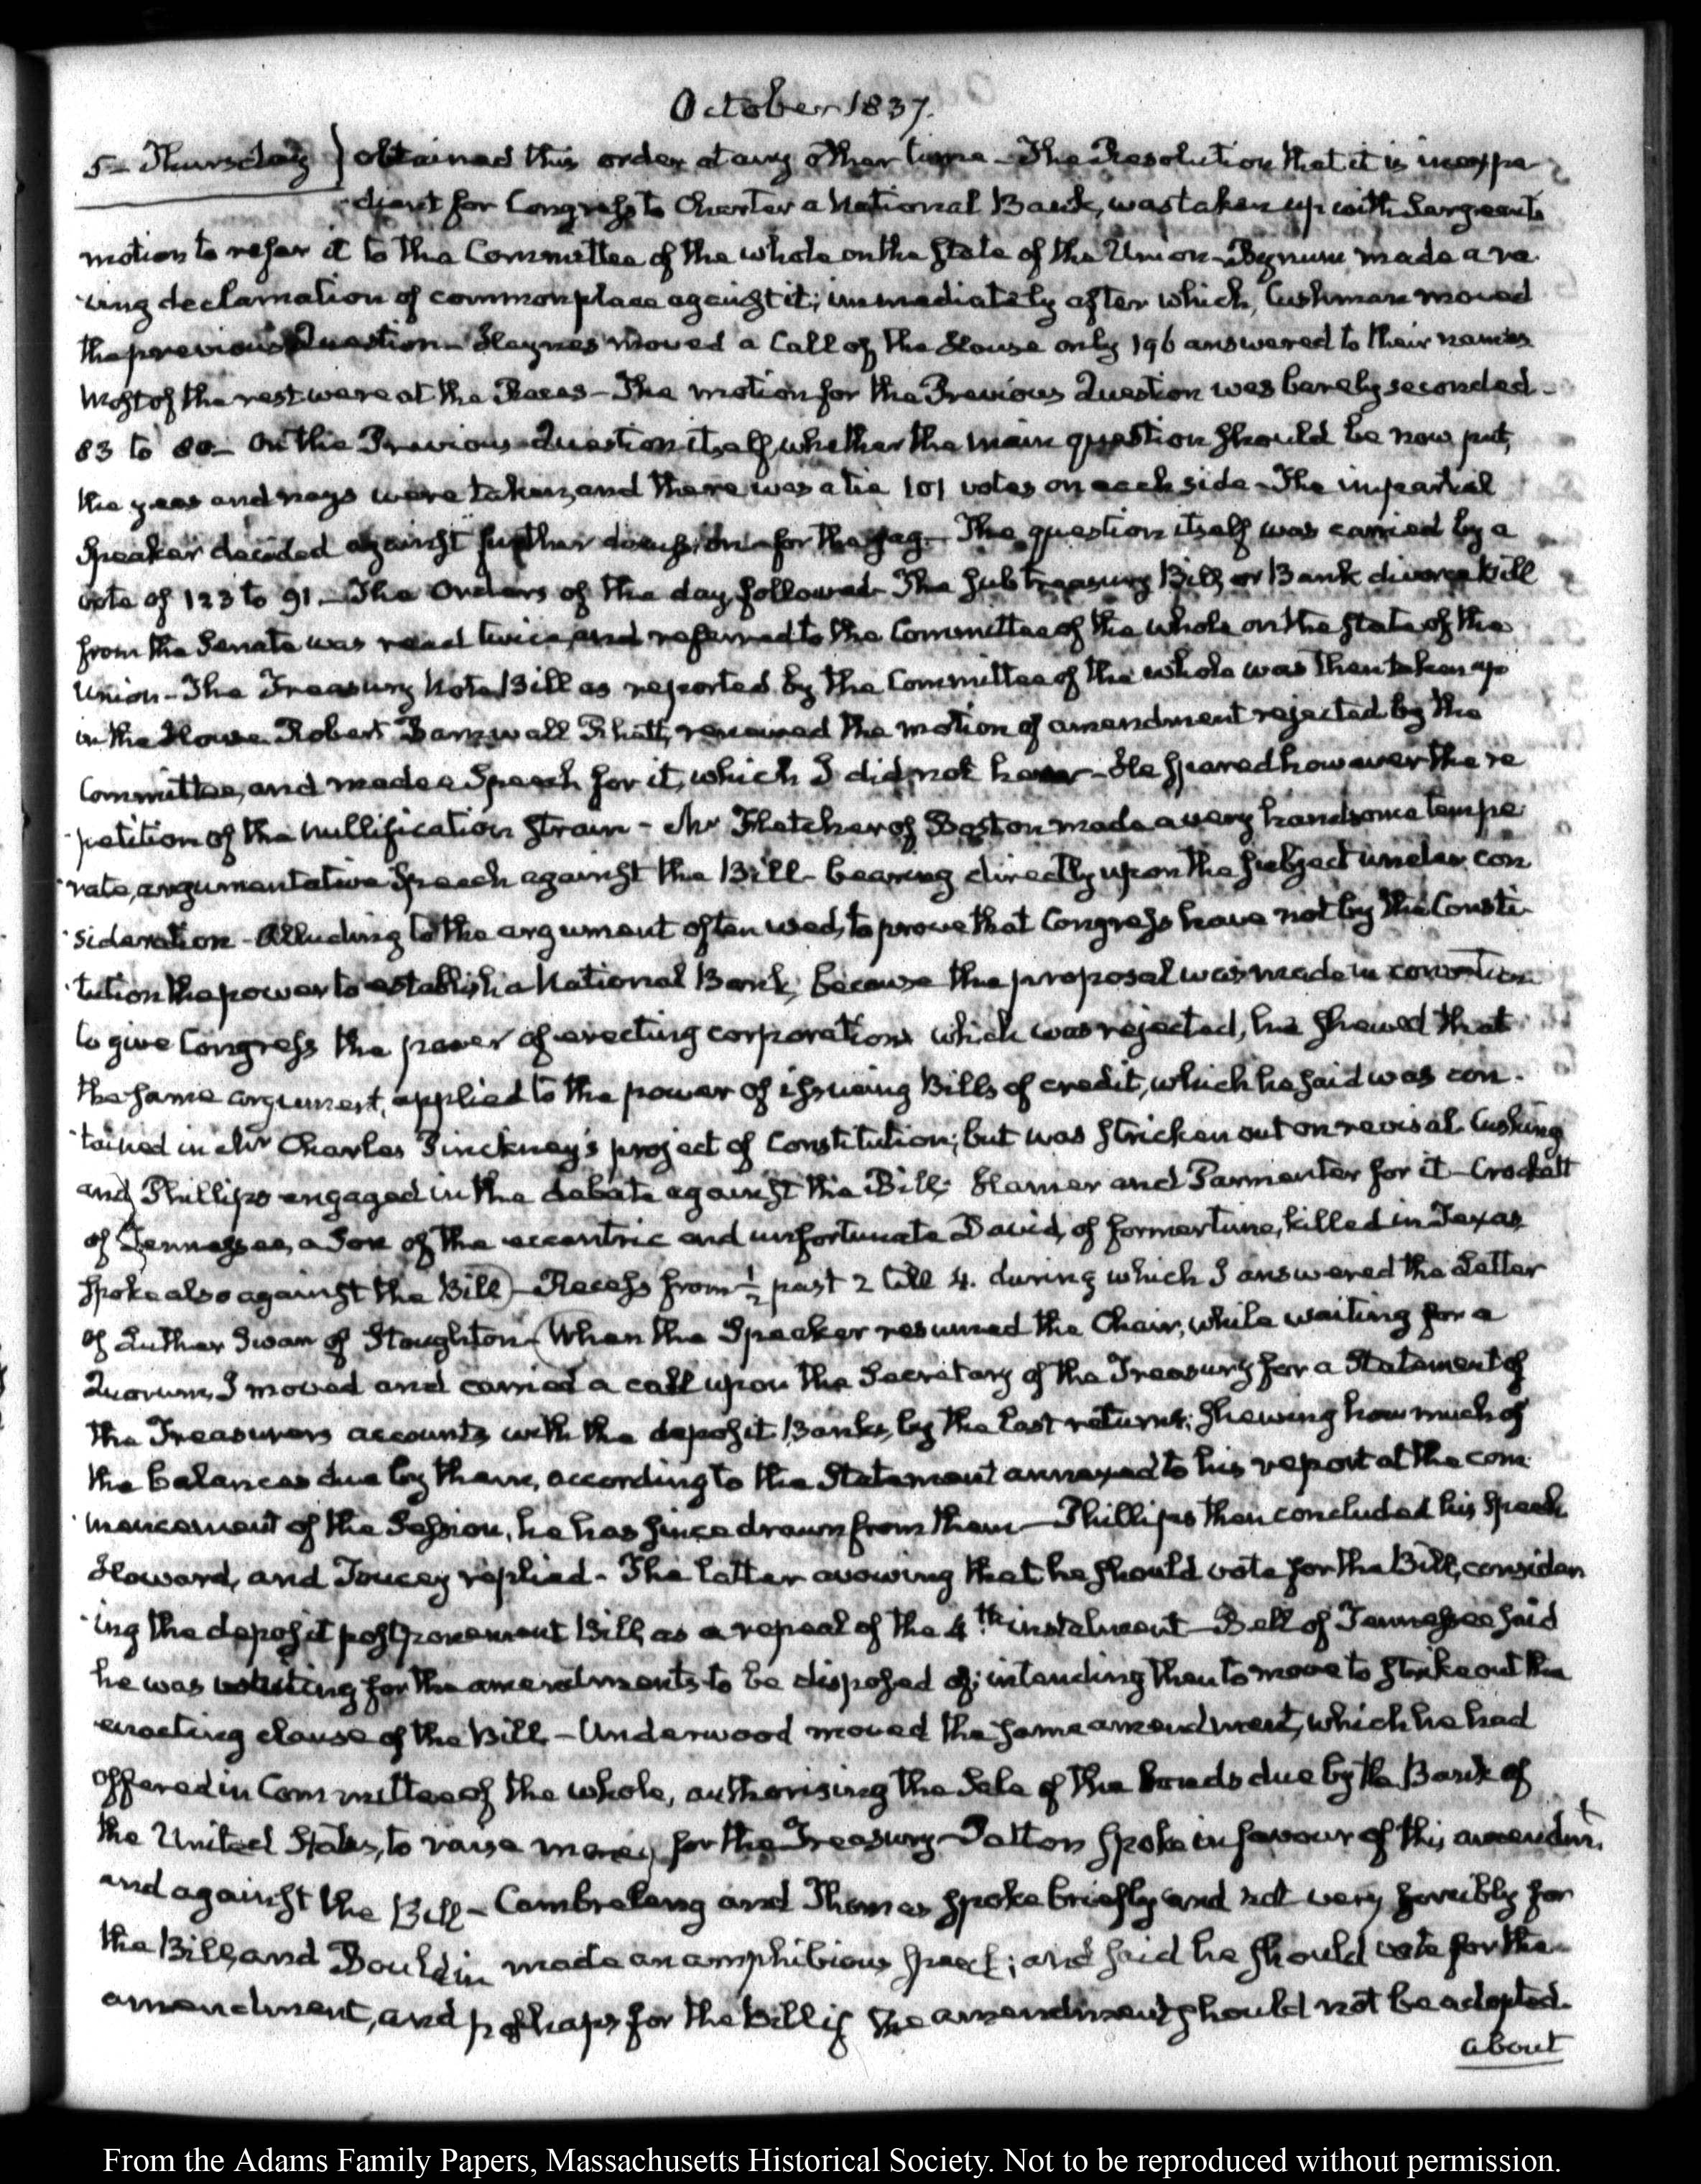 October 1837.
5– Thursday } obtained this order at any other time – The Resolution that it is inexpe
-dient for Congress to Charter a National Bank, was taken up with Sargeant's
motion to refer it to the Committee of the whole on the State of the Union – Bynum made a ra
-ving declamation of commonplace against it; immediately after which, Cushman moved
the previous Question – Haynes moved a Call of the House only 196 answered to their names
Most of the rest were at the Races – The motion for the Previous Question was barely seconded –
83 to 80 – On the Previous Question itself, whether the main question should be now put,
the yeas and nays were taken, and there was a tie 101 votes on each side – The impartial
Speaker decided against further discussion – for the gag – The question itself was carried by a
vote of 123 to 91 – The Orders of the day followed – The Sub treasury Bill, or Bank divorce bill
from the Senate was read twice, and referred to the Committee of the whole on the State of the
Union – The Treasury Note Bill as reported by the Committee of the whole was then taken up
in the House Robert Barnwall Rhatt, renewed the motion of amendment rejected by the
Committee, and made a Speech for it, which I did not hear – He spared however the re
-petition of the nullification strain – Mr Fletcher of Boston made a very handsome tempe
-rate, argumentative Speech against the Bill – bearing directly upon the subject under con
-sideration – Alluding to the argument often used, to prove that Congress have not by the Consti-
-tution the power to establish a National Bank, because the proposal was made in convention
to give Congress the power of erecting corporations which was rejected, he shewed that
the same argument, applied to the power of issueing Bills of credit, which he said was con-
-tained in Mr Charles Pinckney's project of Constitution; but was stricken out on revisal Cushing
and Phillips engaged in the debate against the Bill; Hamer and Parmenter for it – Crockett
of Tennessee, a Son of the eccentric and unfortunate David, of former time, killed in Texas
spoke also against the Bill) – Recess from ½ past 2 till 4. during which I answered the Letter
of Luther Swan of Stoughton – (When the Speaker resumed the Chair, while waiting for a
Quorum, I moved and carried a call upon the Secretary of the Treasury for a Statement of
the Treasurers accounts with the deposit Banks, by the last returns; shewing how much of
the balances due by them, according to the Statement annexed to his report at the com-
-mencement of the Session, he has since drawn from them – Phillips then concluded his Speech
Howard, and Toucey replied – The latter avowing that he should vote for the Bill, consider
-ing the deposit postponement Bill, as a repeal of the 4th instalment – Bell of Tennessee said
he was waiting for the amendments to be disposed of; intending then to move to strike out the
enacting clause of the Bill – Underwood moved the same amendment, which he had
offered in Committee of the whole, authorising the Sale of the bonds due by the Bank of
the United States, to raise money for the Treasury – Patton spoke in favour of this amendmt
and against the Bill – Cambreleng and Thomas spoke briefly and not very forcibly for
the Bill, and Bouldin made an amphibious speech; and said he should vote for the
amendment, and perhaps for the Bill if the amendment should not be adopted.
about
From the Adams Family Papers, Massachusetts Historical Society. Not to be reproduced without permission.